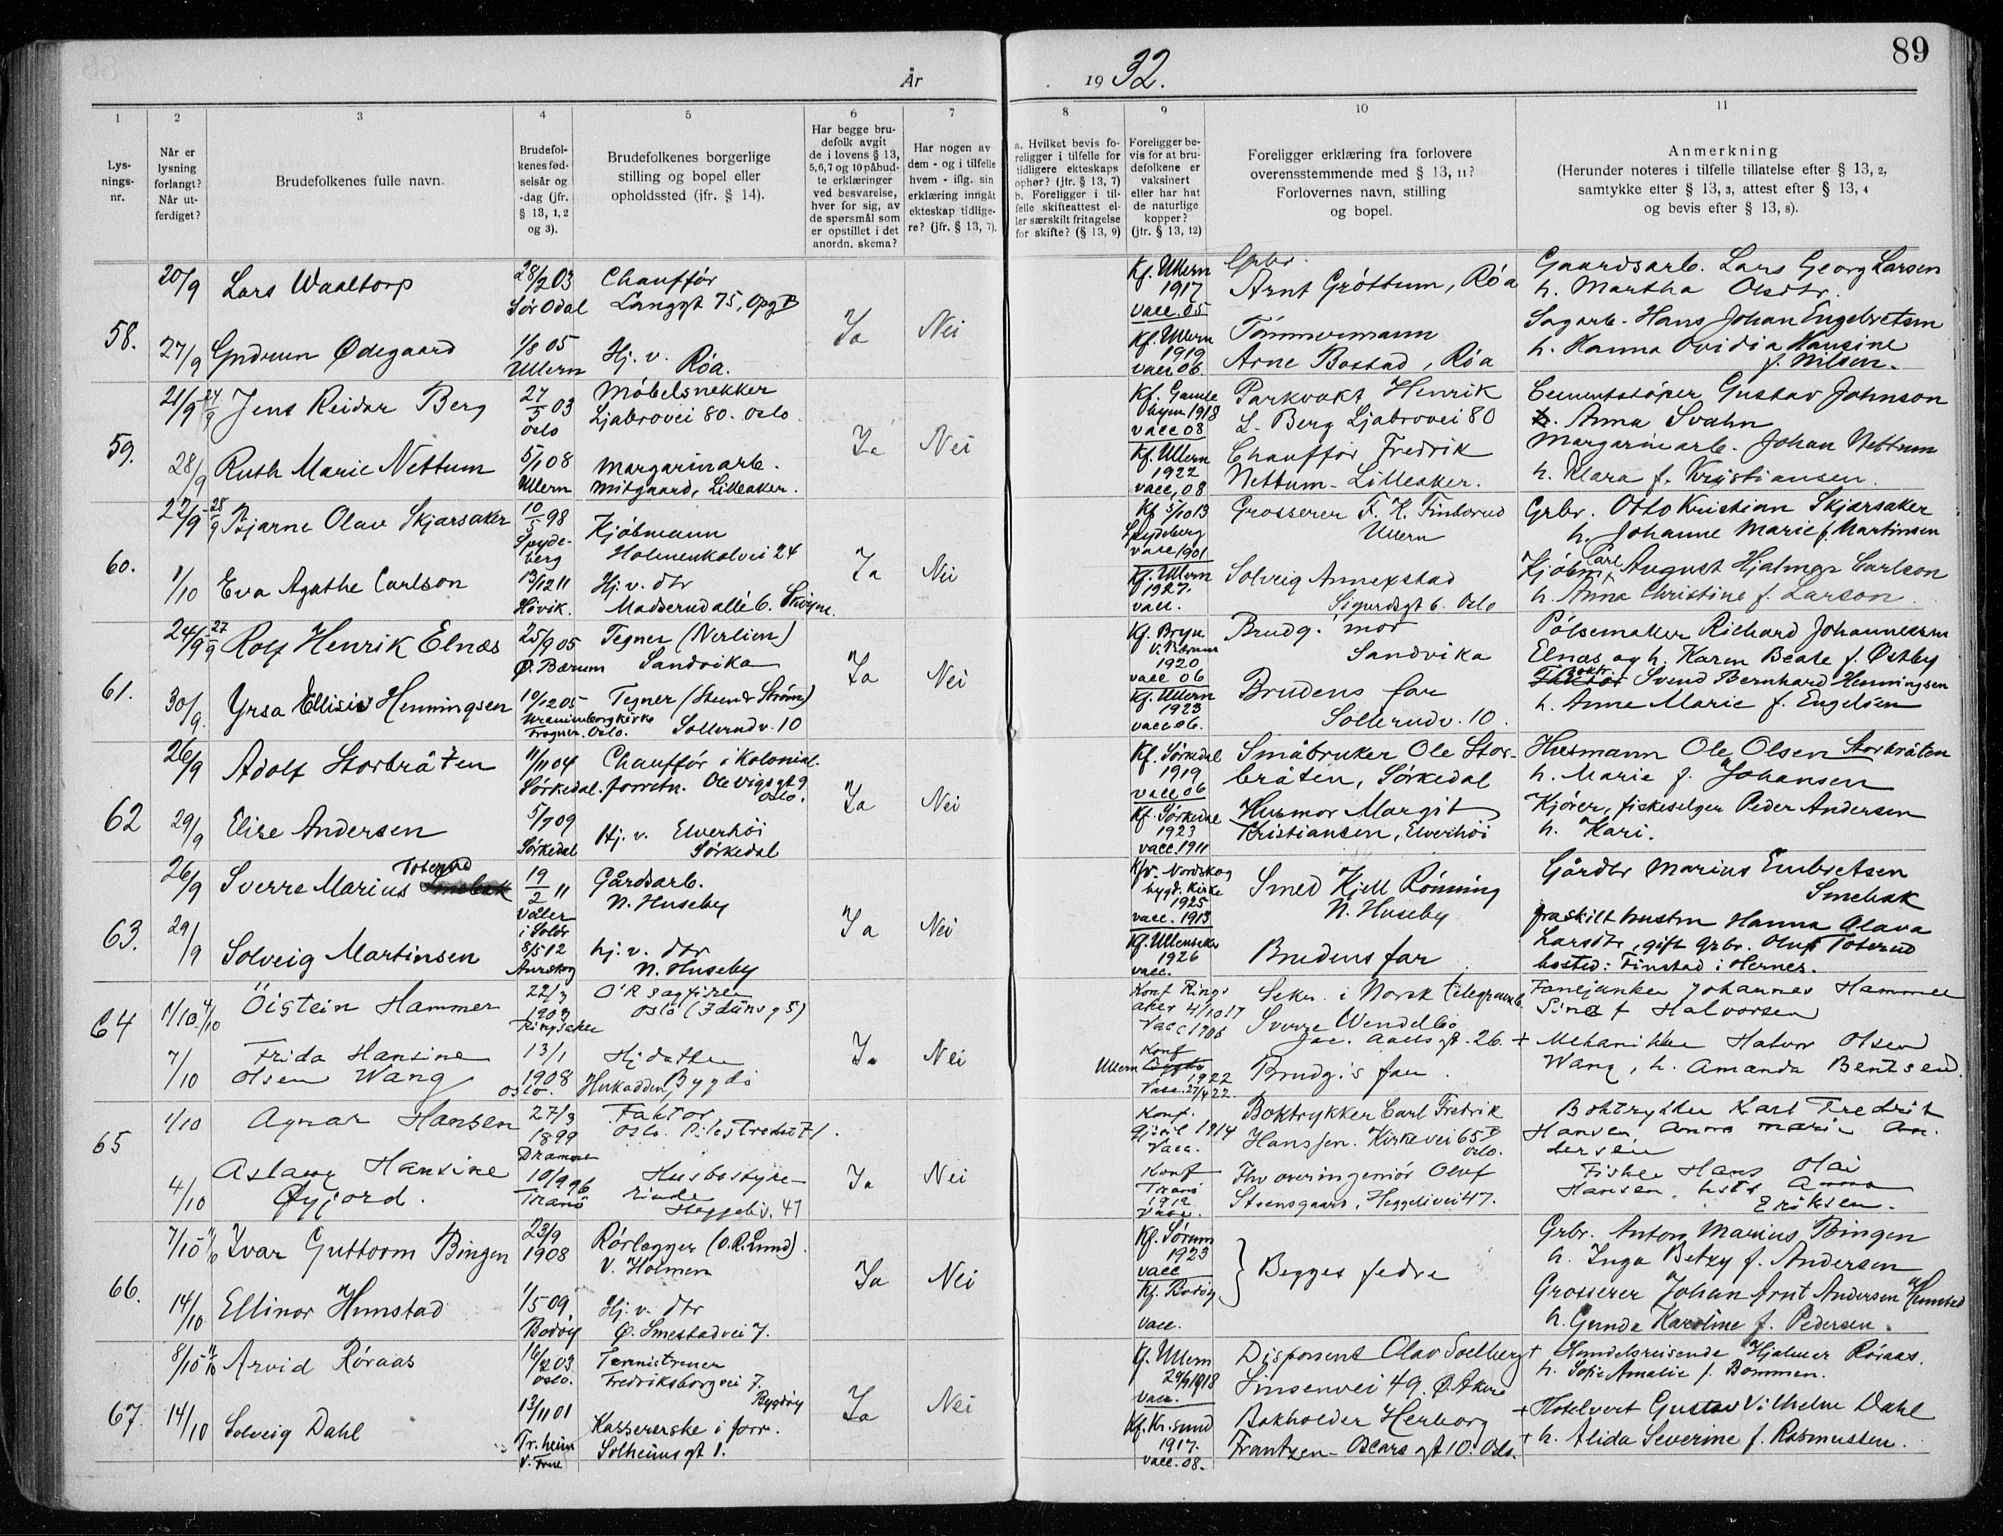 89
År 1932.
1
2
3
4
5
6
7
8
9
10
11
Lys-
nings-
nr.
Når er
lysning
forlangt?
Når ut-
ferdiget?
Brudefolkenes fulle navn.
Brudefol-
kenes fød-
selsår og
-dag (jfr.
§ 13, 1, 2
og 3).
Brudefolkenes borgerlige
stilling og bopel eller
opholdssted (jfr. § 14).
Har begge bru-
defolk avgit
de i lovens § 13,
5,6,7 og 10 påbud-
te erklæringer
ved besvarelse,
hver for sig, av
de spørsmål som
er opstillet i det
anordn. skema?
Har nogen av
dem - og i tilfelle
hvem - iflg. sin
erklæring inngått
ekteskap tidlige-
re? (jfr. § 13, 7).
a. Hvilket bevis fo-
religger i tilfelle for
tidligere ekteskaps
ophør? (jfr. § 13, 7)
b. Foreligger i til-
felle skifteattest el-
ler særskilt fritagelse
for skifte? (§ 13, 9)
Foreligger be-
vis for at bru-
defolkene er
vaksinert
eller har hat
de naturlige
kopper?
(jfr. § 13, 12)
Foreligger erklæring fra forlovere
overensstemmende med § 13, 11?
Forlovernes navn, stilling
og bopel.
Anmerkning
(Herunder noteres i tilfelle tillatelse efter § 13, 2,
samtykke efter § 13, 3, attest efter § 13, 4
og bevis efter § 13, 8).
58.
20/9 Lars Waaltorp 28/2 03 Sør Odal Chauffør Langgt 75, Opg B
Ja Nei
Kf. Ullern 1917 vacc. 05 Grbr. Arnt Grøttum, Røa
Gaardsarb. Lars Georg Larsen
h. Martha Olsdtr.
27/9 Gudrun Ødegaard 1/8 05 Ullern Hj. v. Røa.
Kf. Ullern 1919 vacc 06. Tømmermann Arne Bostad, Røa
Sagarb. Hans Johan Engebretsen
h. Hanna Ovidia Hansine
f. Nilsen.
59.
21/9 24/9 Jens Reidar Berg 27/5 03 Oslo Møbelsnekker Ljabrovei 80. Oslo
Ja Nei
Kf. Gamle 1918 vacc 08 Parkvakt Henrik L. Berg Ljabrovei 80
Cementstøper Gustav Johnson
h. Anna Svahn
28/9 Ruth Marie Nettum 5/1 08 Ullern Margarinarb. Mitgaard, Lilleaker.
Kf. Ullern 1922 vacc. 08 Chauffør Fredrik Nettum - Lilleaker.
Margarinearb. Johan Nettum
h. Klara f. Kristiansen.
60.
27/9 28/9 Bjarne Olav Skjærsaker 10/5 98 Spydeberg Kjøbmann Holmenkolvei 24
Ja Nei
Kf 5/10 13 Spydeberg vacc 1901 Grosserer F. H. Finborud Ullern
Grbr. Otto Kristian Skjærsaker
h. Johanne Marie f. Martinsen
1/10 Eva Agathe Carlson 13/12 11 Høvik. Hj. v. dtr Madserud allé 6. Skøyen.
Kf. Ullern 1927. vacc. Solveig Annexstad Sigurdsgt 6. Oslo
Kjøbm. Carl August Hjalmar Carlson
h. Anna Christine f. Larson
61.
24/9 27/9 Rolf Henrik Elnæs 25/9 05 Ø. Bærum Tegner (Nerlien) Sandvika
Ja Nei
Kf. Bryn V. Bærum 1920 vacc 06 Brudg. mor Sandvika
Pølsemaker Richard Johannessen
Elnæs og h. Karen Beate f. Østby
30/9. Yrsa Ellisiv Henningsen 10/12 05 Uranienborgkirke Frogner. Oslo. Tegner (Steen & Strøm) Sollerudv. 10
Kf. Ullern 1923 vacc 06. Brudens far Sollerudv. 10.
Svend Bernhard Henningsen
h. Anne Marie f. Engelsen
62
26/9 Adolf Storbråten 11/11 04 Sørkedal. Chauffør i Kolonial- forretn. Ole Vigsgt 9 Oslo.
Ja Nei
Kf. Sørkedal 1919 vacc 06 Småbruker Ole Storbråten, Sørkedal
Husmann Ole Olsen Storbråten
h. Marie f. Johansen
29/9 Elise Andersen 5/7 09 Sørkedal Hj. v. Elverhøi Sørkedal
Kf. Sørkedal 1923 vacc. 1911 Husmor Margit Kristiansen, Elverhøi
Kjører, fiskeselger Peder Andersen
h. Kari.
63.
26/9 Sverre Marius Toterud 19/2 11 Våler i Solør Gårdsarb. N. Huseby
Ja Nei
Kf. Nordskogbygd. Kirke 1925 vacc. 1913 Smed Kjell Rønning N. Huseby
Gårdbr Marius Embretsen
Smebak
fraskilt hustru Hanna Olava
Larsdtr, gift grbr. Oluf Toterud
bosted: Finstad i Hernes.
29/9 Solveig Martinsen 8/5 12 Aurskog hj. v. dtr N. Huseby
Kf. Ullensaker 1926 vacc. Brudens far
64
1/10 4/10 Öistein Hammer 22/3 1903 Ringsaker O'R sagfører Oslo (Iduns g 5)
Ja Nei
Konf Ringsaker 4/10 17 Vacc 1905 Sekr. i Norsk telegrambl. Sverre Wendelbo Jac. Aalls gt. 26. +
Fanejunker Johannes Hammer
Sina f Halvorsen
7/10 Frida Hansine Olsen Wang 13/1 1908 Oslo. Hj datter Herkadden, Bygdö
Ullern Konf 1922 Vacc. 27/4 22. Brudg's far.
Mekaniker Halvor Olsen
Wang, h. Amanda Bentsen.
65
1/10 Agnar Hansen 27/3 1899 Drammen Faktor Oslo. Pilestredet 71.
Ja Nei
Konf. Gjøvik 1914 Vacc. Boktrykker Carl Fredrik Hanssen. Kirkevei 65 B Oslo.
Boktrykker Karl Fredrik
Hansen, Anna Marie An-
dersen
4/10 Aslaug Hansine Øyjord. 10/9 96 Tranö Husbestyrerinde Heggeliv. 47
Konf Tranö 1912 Vacc. Fhv overingeniør Oluf Steensgaard, Heggelivei 47.
Fisker Hans Olai
Hansen, hstr Anna
Eriksen.
66.
7/10 Ivar Guttorm Bingen 23/9 1908 Rørlegger (O. R. Lund). V. Holmen
Ja Nei
Kf. Sørum 1923 vacc Begges fedre
Grbr. Anton Marius Bingen
h. Inga Betzy f. Andersen
14/10 Ellinor Humstad 1/5 09. Bodøy Hj. v. dtr Ø. Smestadvei 7.
Kf. Bodøy vacc.
Grosserer Johan Arnt Andersen Humstad
h. Gunda Karoline f. Pedersen.
67.
8/10 11/10 Arvid Røraas 16/12 03. Oslo. Tennistrener Fredriksborgvei 7. Bygdøy
Ja Nei
Kf. Ullern 29/9 1918 vacc. Disponent Olav Soelberg + Linsenvei 49. Ø. Aker
Handelsreisende Hjalmar Røraas.
h. Sofie Amalie f. Bommen.
14/10 Solveig Dahl 13/11 01 Tr.heim V. Frue Kassererske i forr. Solheimsgt 1.
Kf. Kr.sund 1917. vacc. 08. Bokholder Herborg Frantzen - Oscars gt 10. Oslo.
+ Hotelvert Gustav Vilhelm Dahl
+ h. Alida Severine f. Rasmussen.